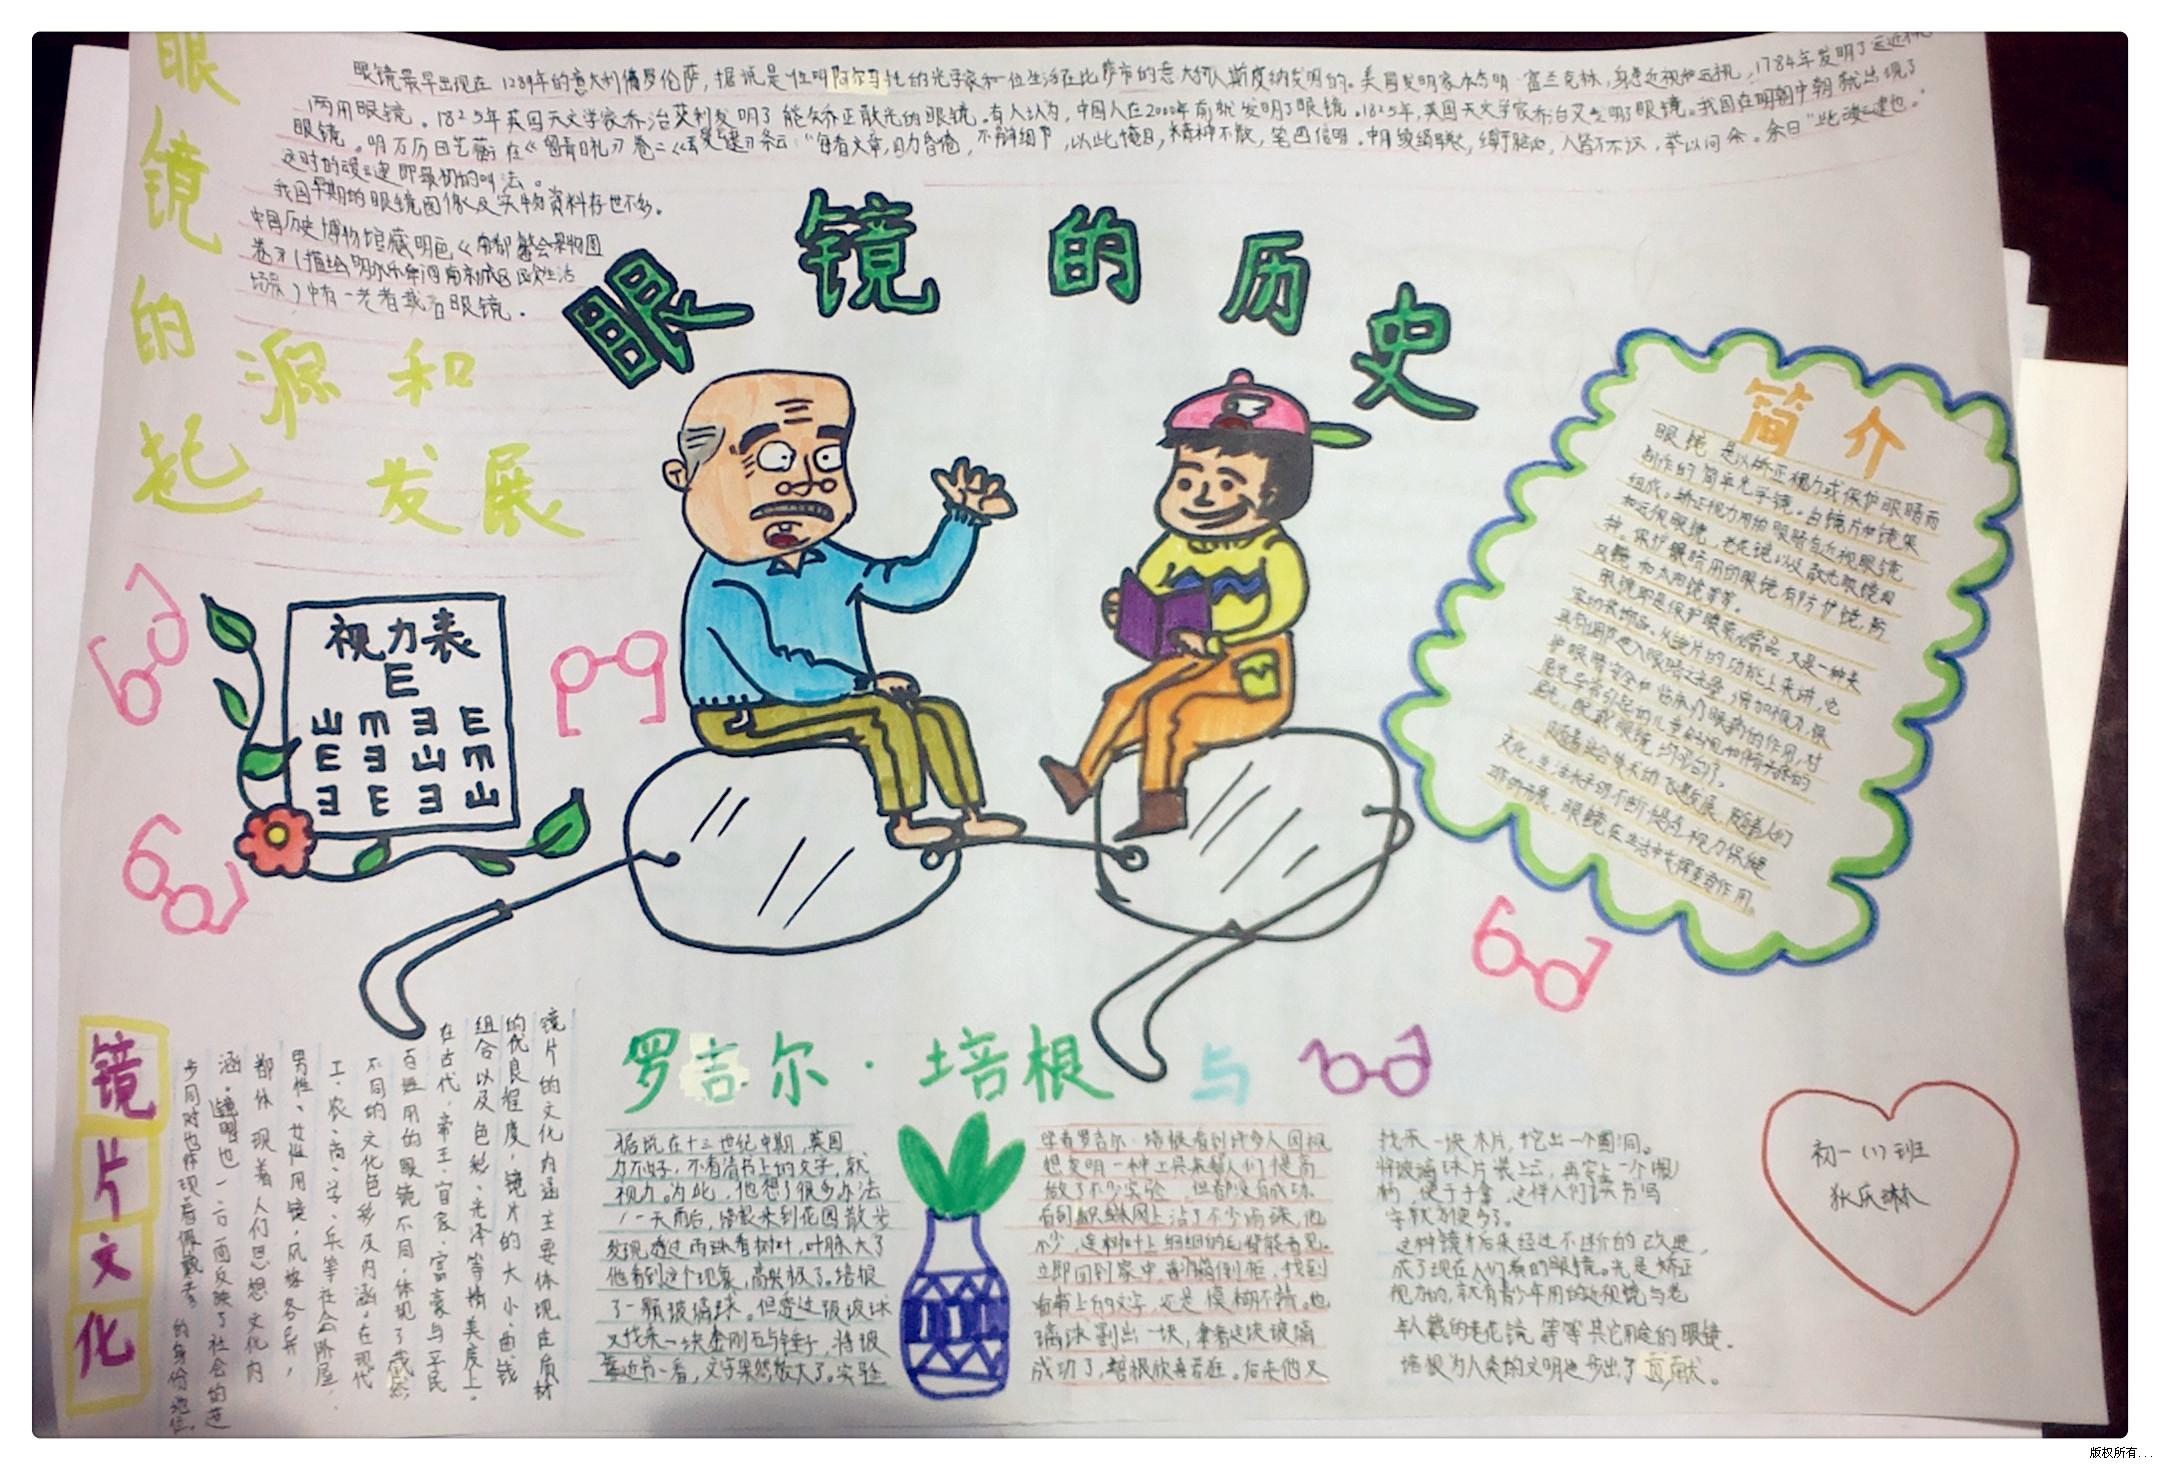 眼镜的历史
眼镜的起源和发展
眼镜最早出现在1289年的意大利佛罗伦萨，据说是一位叫阿尔马托的光学家和一位生活在比萨市的意大利人斯皮纳发明的。美国发明家本杰明·富兰克林，身患近视和远视，1784年发明了远近视
两用眼镜。1825年英国天文学家乔治艾利发明了能矫正散光的眼镜。有人认为，中国人在2000年前就发明了眼镜。1825年，英国天文学家乔治又发明了眼镜。我国在明朝中期就出现了
眼镜。明万历田艺蘅在《留青日札》卷二《叆叇》条云："每看文章，目力昏倦，不辨细节，以此掩目，精神不散，笔画倍明。
人皆不识，举以问余。余曰"此叆叇也。"
这时的叆叇即最初的叫法。
我国早期的眼镜图像及实物资料存世不多。
中国历史博物馆藏明
场景）中有一老者戴着眼镜。
视力表
E
山 m ヨ E
E ヨ 山 m
ヨ E ヨ 山
简介
眼镜是以矫正视力或保护眼睛而
制作的简单光学镜。由镜片和镜架
组成。矫正视力用的眼睛有近视眼镜
和远视眼镜，老花镜以及散光眼镜四
种。保护眼睛用的眼镜有防护镜，防
风镜和太阳镜等等。
眼镜即是保护眼睛
文化，生活水平的不断提高，视力保健
眼镜在生活中发挥重要作用。
镜片文化
镜片的文化内涵主要体现在质材
的优良程度，镜片的大小、曲线
组合以及色彩、光泽等精美度上。
在古代，帝王、官宦、富豪与平民
百姓用的眼镜不同，体现了截然
不同的文化色彩及内涵。在现代
工、农、商、学、兵等社会阶层，
男性、女性用镜，风格各异，
都体现着人们思想文化内
涵。眼镜也一方面反映了社会的进
步同时也体现着佩戴者的身份地位。
罗吉尔·培根与
据说在十三世纪中期，英国
力不好，不看清书上的文字，就
视力。为此，他想了很多办法
一天雨后，培根来到花园散步
发现透过雨珠看树叶，叶脉大了
他看到这个现象，高兴极了。培根
了一颗玻璃球。但透过玻璃球
又找来一块金刚石与锤子，将玻
靠近书一看，文字果然放大了。实验
学者罗吉尔·培根看到许多人因视
想发明一种工具来帮人们提高
做了不少实验，但都没有成功。
看到蜘蛛网上沾了不少雨珠，他
不少，连树叶上细细的毛都能看见。
立即回到家中，翻箱倒柜，找到
看书上的文字，还是模糊不清。他
璃球割出一块，拿着这块玻璃
成功了，培根欣喜若狂。后来他又
找来一块木片，挖出一个圆洞。
将玻璃球片装上去，再安上一个
柄，便于手拿，这样人们读书写
字就方便多了。
这种镜片后来经过不断的改进，
成了现在人们戴的眼镜。光是矫正
视力的，就有青少年用的近视镜与老
年人戴的老花镜等等其它用途的眼镜。
培根为人类的文明进步出了贡献。
初一（1）班
版权所有...